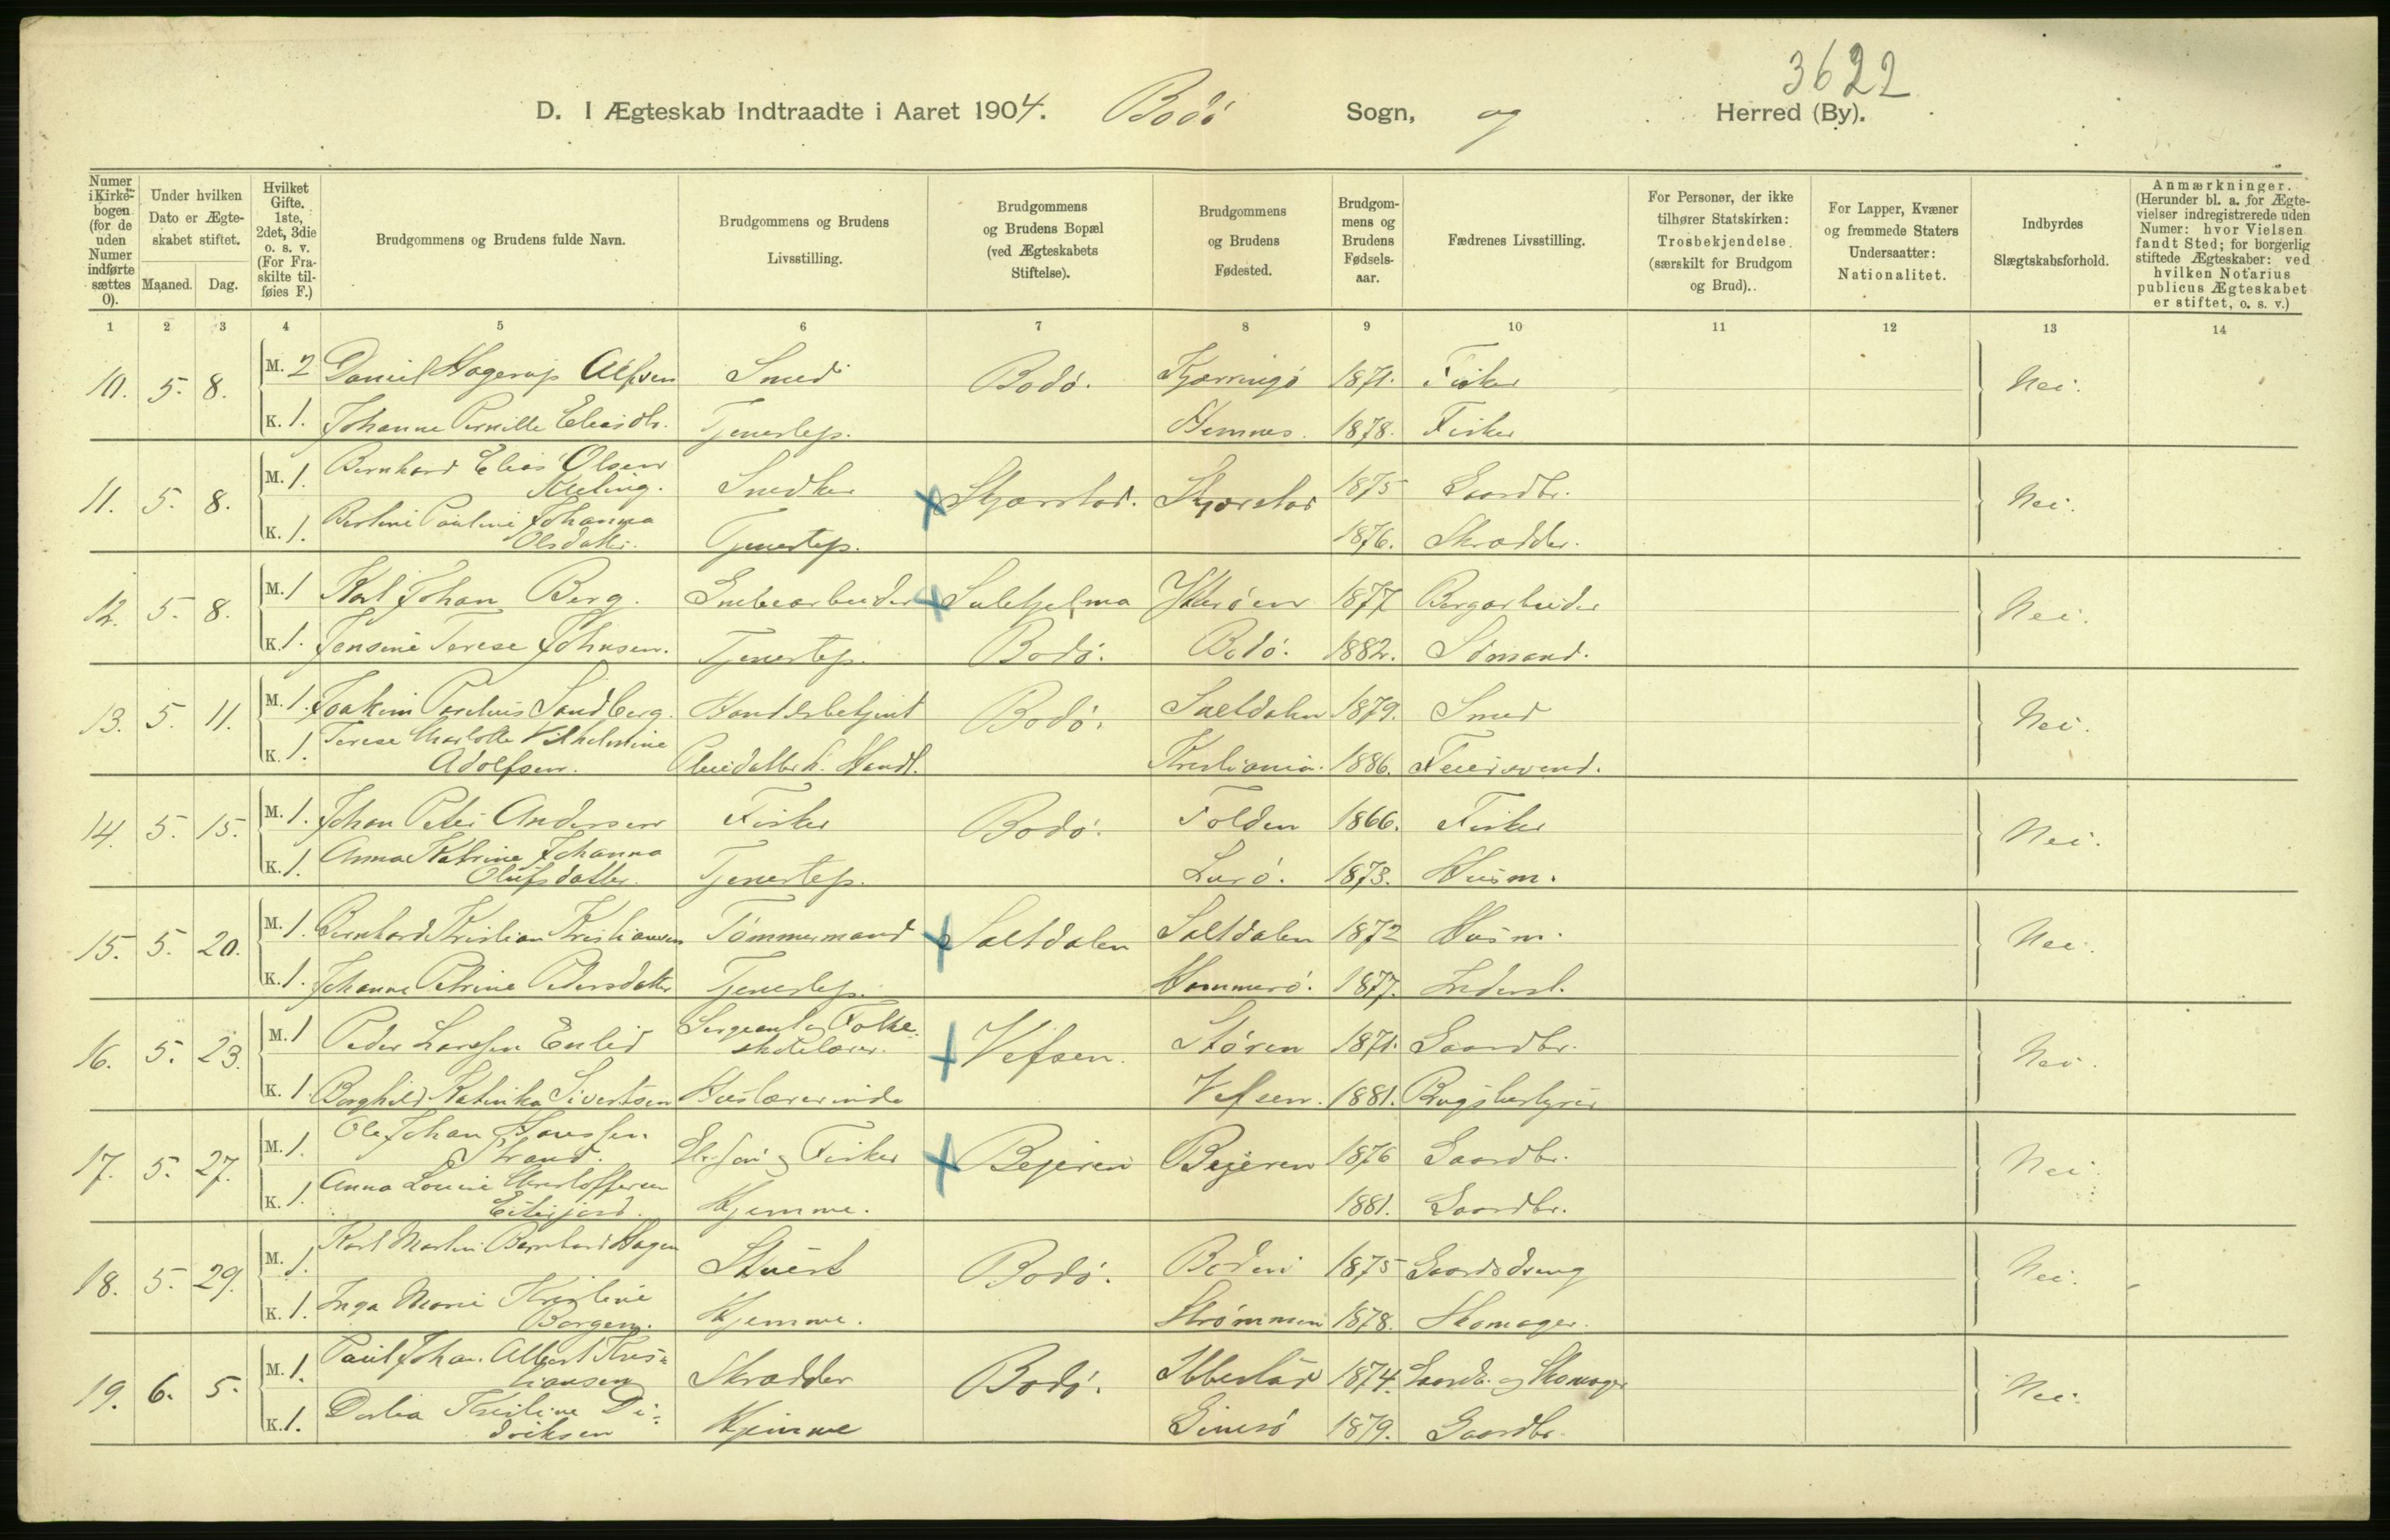 3622
D. I Ægteskab Indtraadte i Aaret 1904. Bodö Sogn, og Herred (By).
Numer i Kirkebogen (for de uden Numer indførte sættes 0).
Under hvilken Dato er Ægteskabet stiftet.
Maaned. Dag.
Hvilket Gifte. 1ste, 2det, 3die o. s. v. (For Fraskilte tilføies F.)
Brudgommens og Brudens fulde Navn.
Brudgommens og Brudens Livsstilling.
Brudgommens og Brudens Bopæl (ved Ægteskabets Stiftelse).
Brudgommens og Brudens Fødested.
Brudgommens og Brudens Fødselsaar.
Fædrenes Livsstilling.
For Personer, der ikke tilhører Statskirken: Trosbekjendelse (særskilt for Brudgom og Brud).
For Lapper, Kvæner og fremmede Staters Undersaatter: Nationalitet.
Indbyrdes Slægtskabsforhold.
Anmærkninger. (Herunder bl. a. for Ægtevielser indregistrerede uden Numer: hvor Vielsen fandt Sted; for borgerlig stiftede Ægteskaber: ved hvilken Notarius publicus Ægteskabet er stiftet, o. s. v.)
1 2 3 4 5 6 7 8 9 10 11 12 13 14
10. 5. 8. M. 2 Daniel Hagerup Alfsen Smed Bodö. Kjærringö 1871. Fisker Nei.
K. 1. Johanne Pernille Eliasdtr. Tjenestep. Hemnes. 1878. Fisker
11. 5. 8. M. 1. Bernhard Elias Olsen Snedker Skjærstad. Skjærstad 1875 Gaardbr. Nei.
K. 1. Bertine Pauline Johanna
Olsdatter. Tjenestep. 1876. Skrædder.
12. 5. 8. M. 1 Karl Johan Berg. Grubearbeider Sulitjelma Ytterøen 1877 Bergarbeider Nei.
K. 1. Jensine Terese Johnsen. Tjenestep. Bodö. Bodö. 1882. Sömand.
13. 5. 11. M. 1. Joakim Parelius Sandberg. Handelsbetjent Bodö. Saltdalen 1879. Smed Nei.
K. 1. Terese Charlotte Vilhelmine
Adolfsen. Kristiania. 1886. Feiersvend.
14. 5. 15. M. 1. Johan Peter Andersen Fisker Bodö. Folden 1866. Fisker Nei.
K. 1. Anna Katrine Johanna
Olufsdatter. Tjenestep. Lurö. 1873. Husm.
15. 5. 20. M. 1. Bernhard Kristian Kristiansen Tömmermand Saltdalen Saltdalen 1872 Husm. Nei.
K. 1. Johanne Petrine Pedersdatter Tjenestep. Hammerö. 1877. Inderst.
16. 5. 23. M. 1 Peder Larssen Enlid Sergeant og Folke-
skolelærer. Vefsen. Støren 1871. Gaardbr. Nei.
K. 1. Borghild Katinka Sivertsen Huslærerinde Vefsen. 1881. Brugsbestyrer
17. 5. 27. M. 1. Ole Johan Hanssen
Strand. Fisker Bejeren Bejeren 1876 Gaardbr. Nei.
K. 1. Anna Lovise Kristoffersen
Hjemme. 1881. Gaardbr.
18. 5. 29. M. 1. Karl Martin Bernhard Hagen Stuert Bodö. Bodin 1875 Gaardsdreng Nei.
K. 1. Inga Marie Kristine
Borgen. Hjemme. Strømmen 1878. Skomager.
19. 6. 5. M. 1. Paul Johan Albert Kris-
tiansen Skrædder Bodö. Ibbestad 1874. Gaardb. og Skomager Nei.
K. 1. Dorthea Kristine Di-
driksen Hjemme Gimsö 1879. Gaardbr.